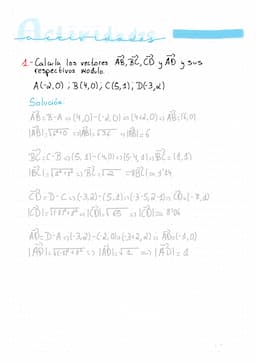 Actividades
1.- Calcula los vectores AB, BC, CD y AD y sus
respectivos modulo.
A(-2,0) ; B(4,0) ; C(5,1) ; D(-3,2)
Solución
AB = B - A => (4,0) - (-2,0) => (4+2,0) => AB = (6,0)
|AB| = √6²+0 => |AB| = √36 => |AB| = 6
BC = C - B => (5,1) - (4,0) => (5-4,1) => BC = (1,1)
|BC| = √1²+1² => BC = √2 => |BC| = 1'14
CD = D - C => (-3,2) - (5,1) => (-3-5,2-1) => CD = (-8,1)
|CD| = √(-8)²+1² => |CD| = √65 => |CD| = 8'06
AD = D - A => (-3,2) - (-2,0) => (-3+2,2) => AD = (-1,0)
|AD| = √(-1)²+0² => |AD| = √1 => |AD| = 1